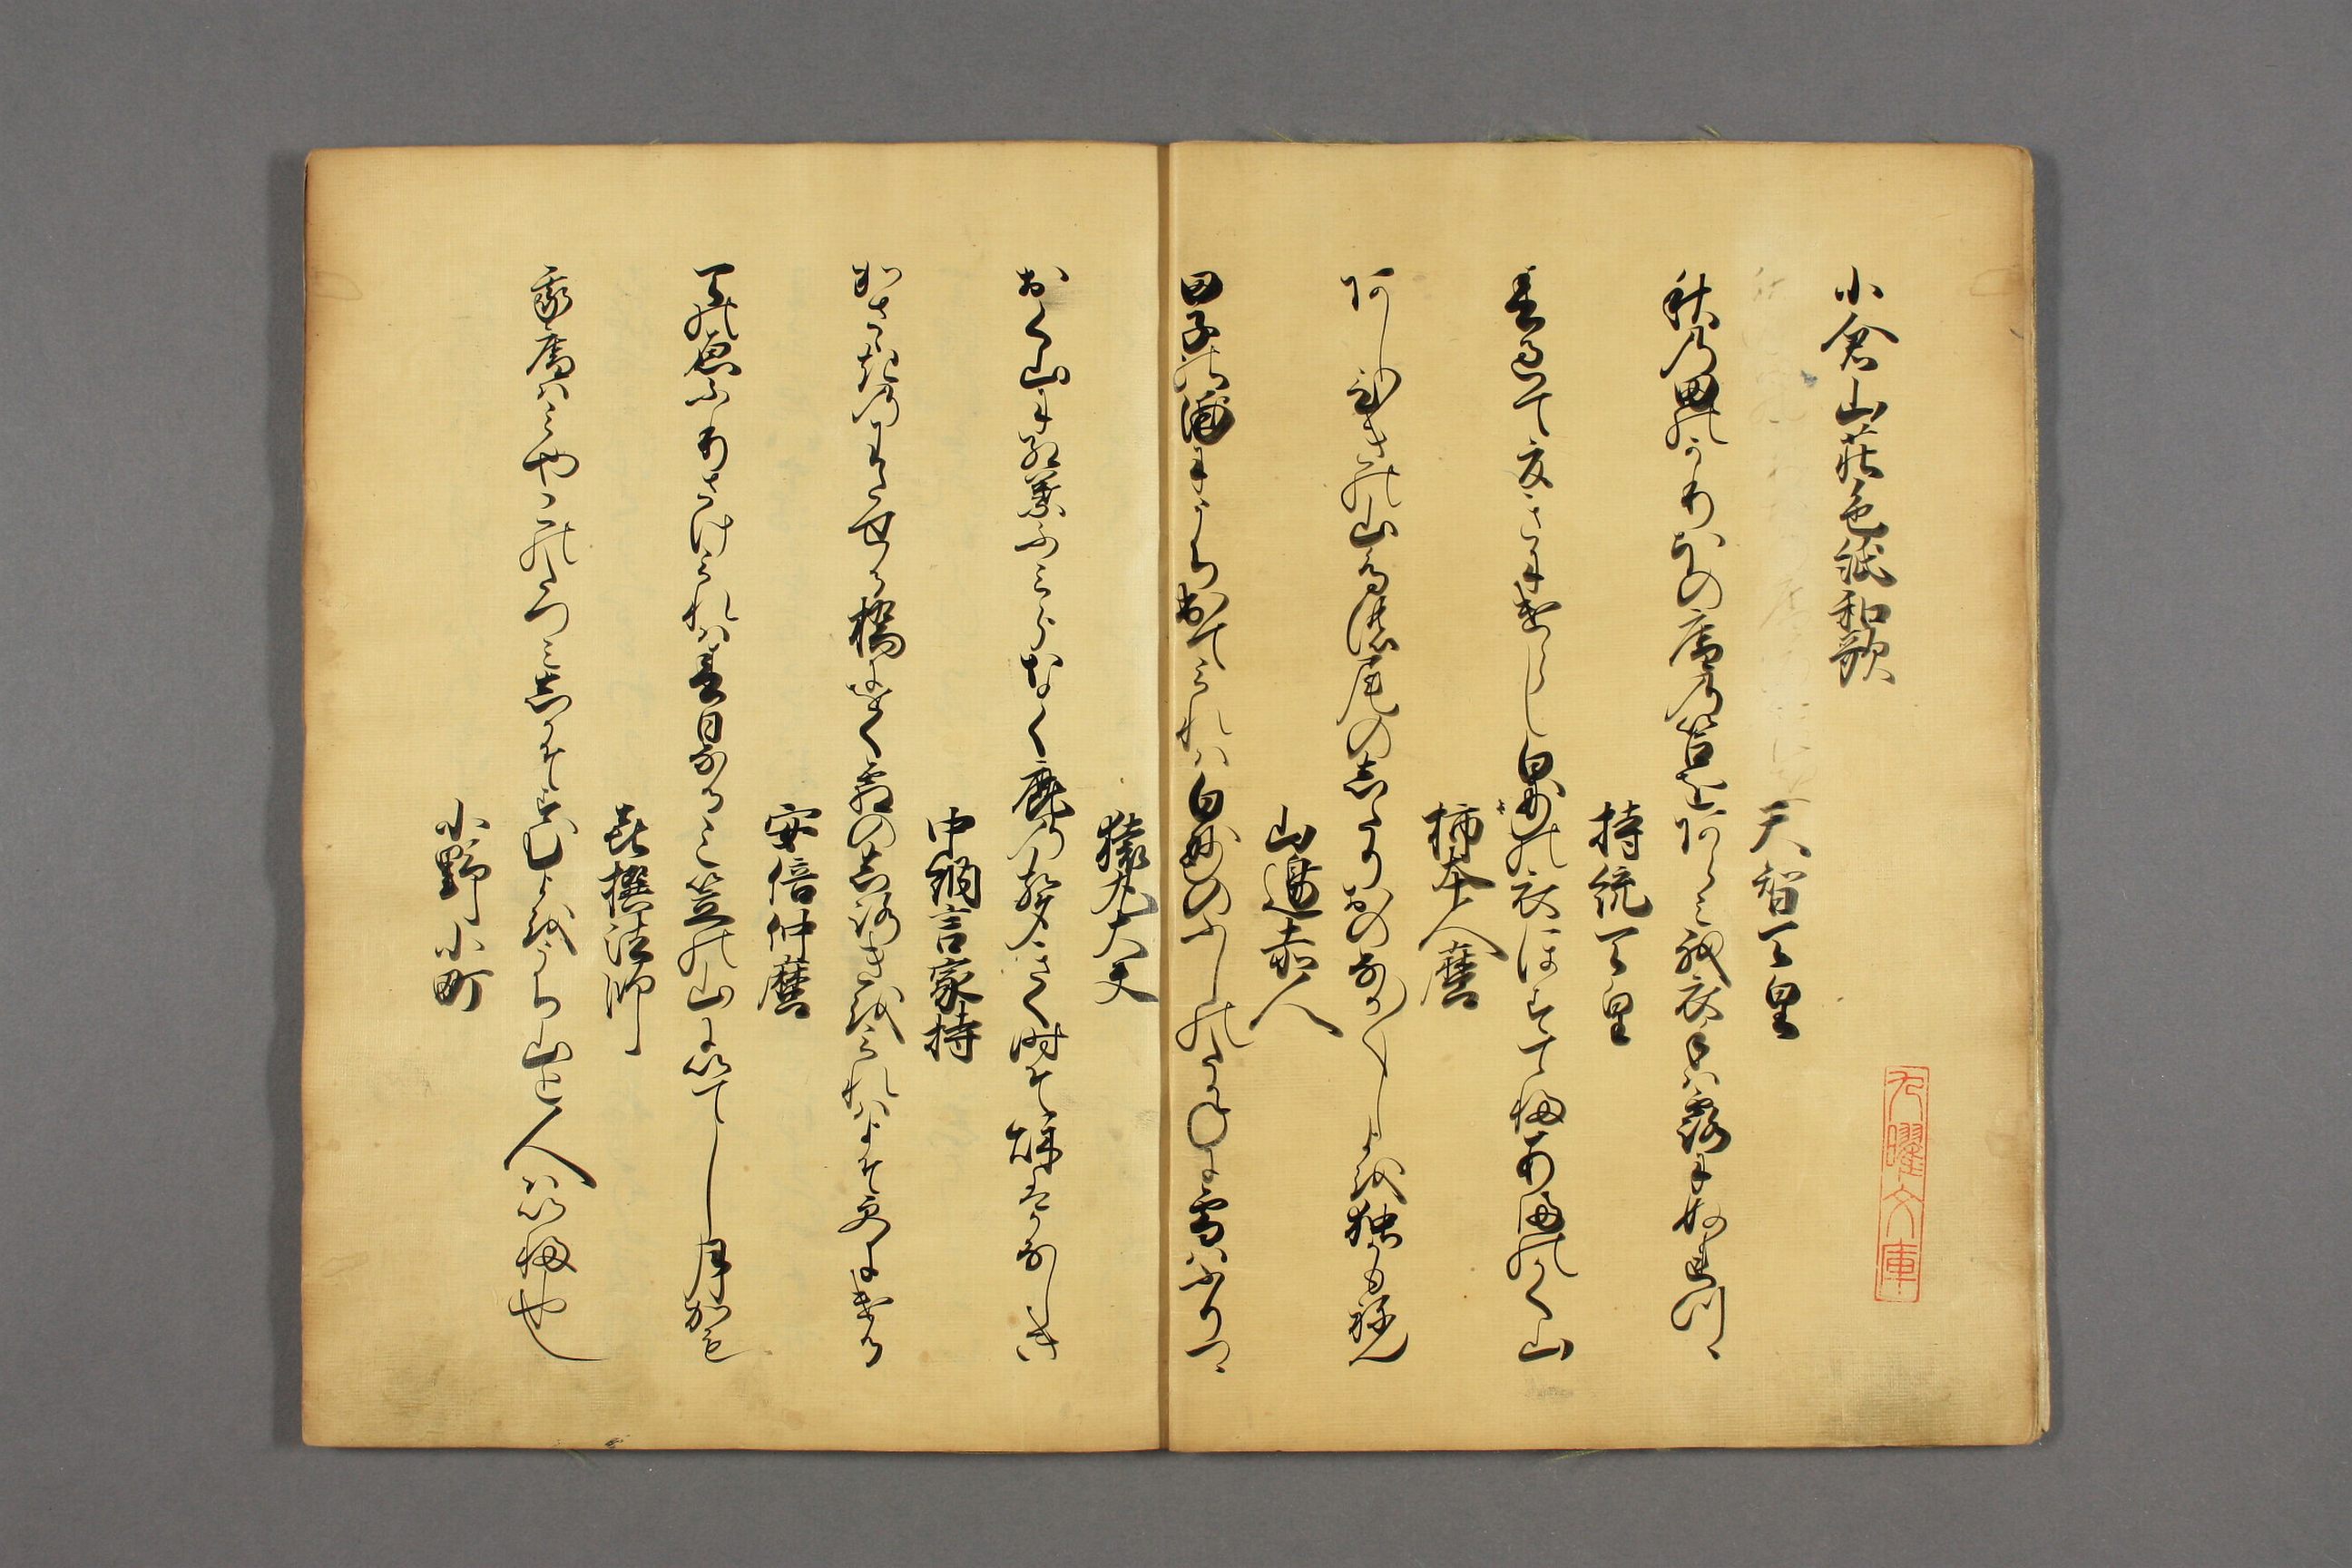 小倉山莊色紙和歌
天智天皇
秋乃田のかりほの庵乃苫をあらみ我衣手は露にぬれつゝ
持統天皇
春過て夏きにけらし白妙の衣ほすてふあまのかく山
柿本人麿
あし引きの山鳥の尾のしたりおのなか〳〵しよを独かもねん
山邊赤人
田子の浦にうち出てみれは白妙のふしのたかねに雪はふりつゝ
猿丸大夫
おく山に紅葉ふみわけなく鹿乃声きく時そ秋はかなしき
中納言家持
かさゝきのわたせる橋にをく霜のしろきをみれはよそ更にける
安倍仲麿
天の原ふりさけみれは春日なるみ笠の山にいてし月かも
喜撰法師
我庵はみやこのたつみしかそすむよをうち山と人はいふ也
小野小町
九曜文庫